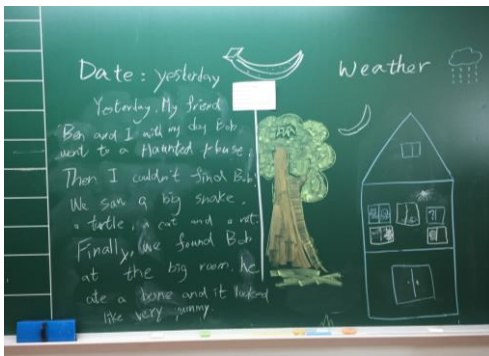 Date: yesterday
Weather
Yesterday, My friend
Ben and I with my dog Bob
went to a Haunted House,
Then I couldn't find Bob.
We saw a big snake,
a turtle, a cat and a rat.
Finally, we found Bob
at the big room. he
ate a bone and it looked
like very yummy.